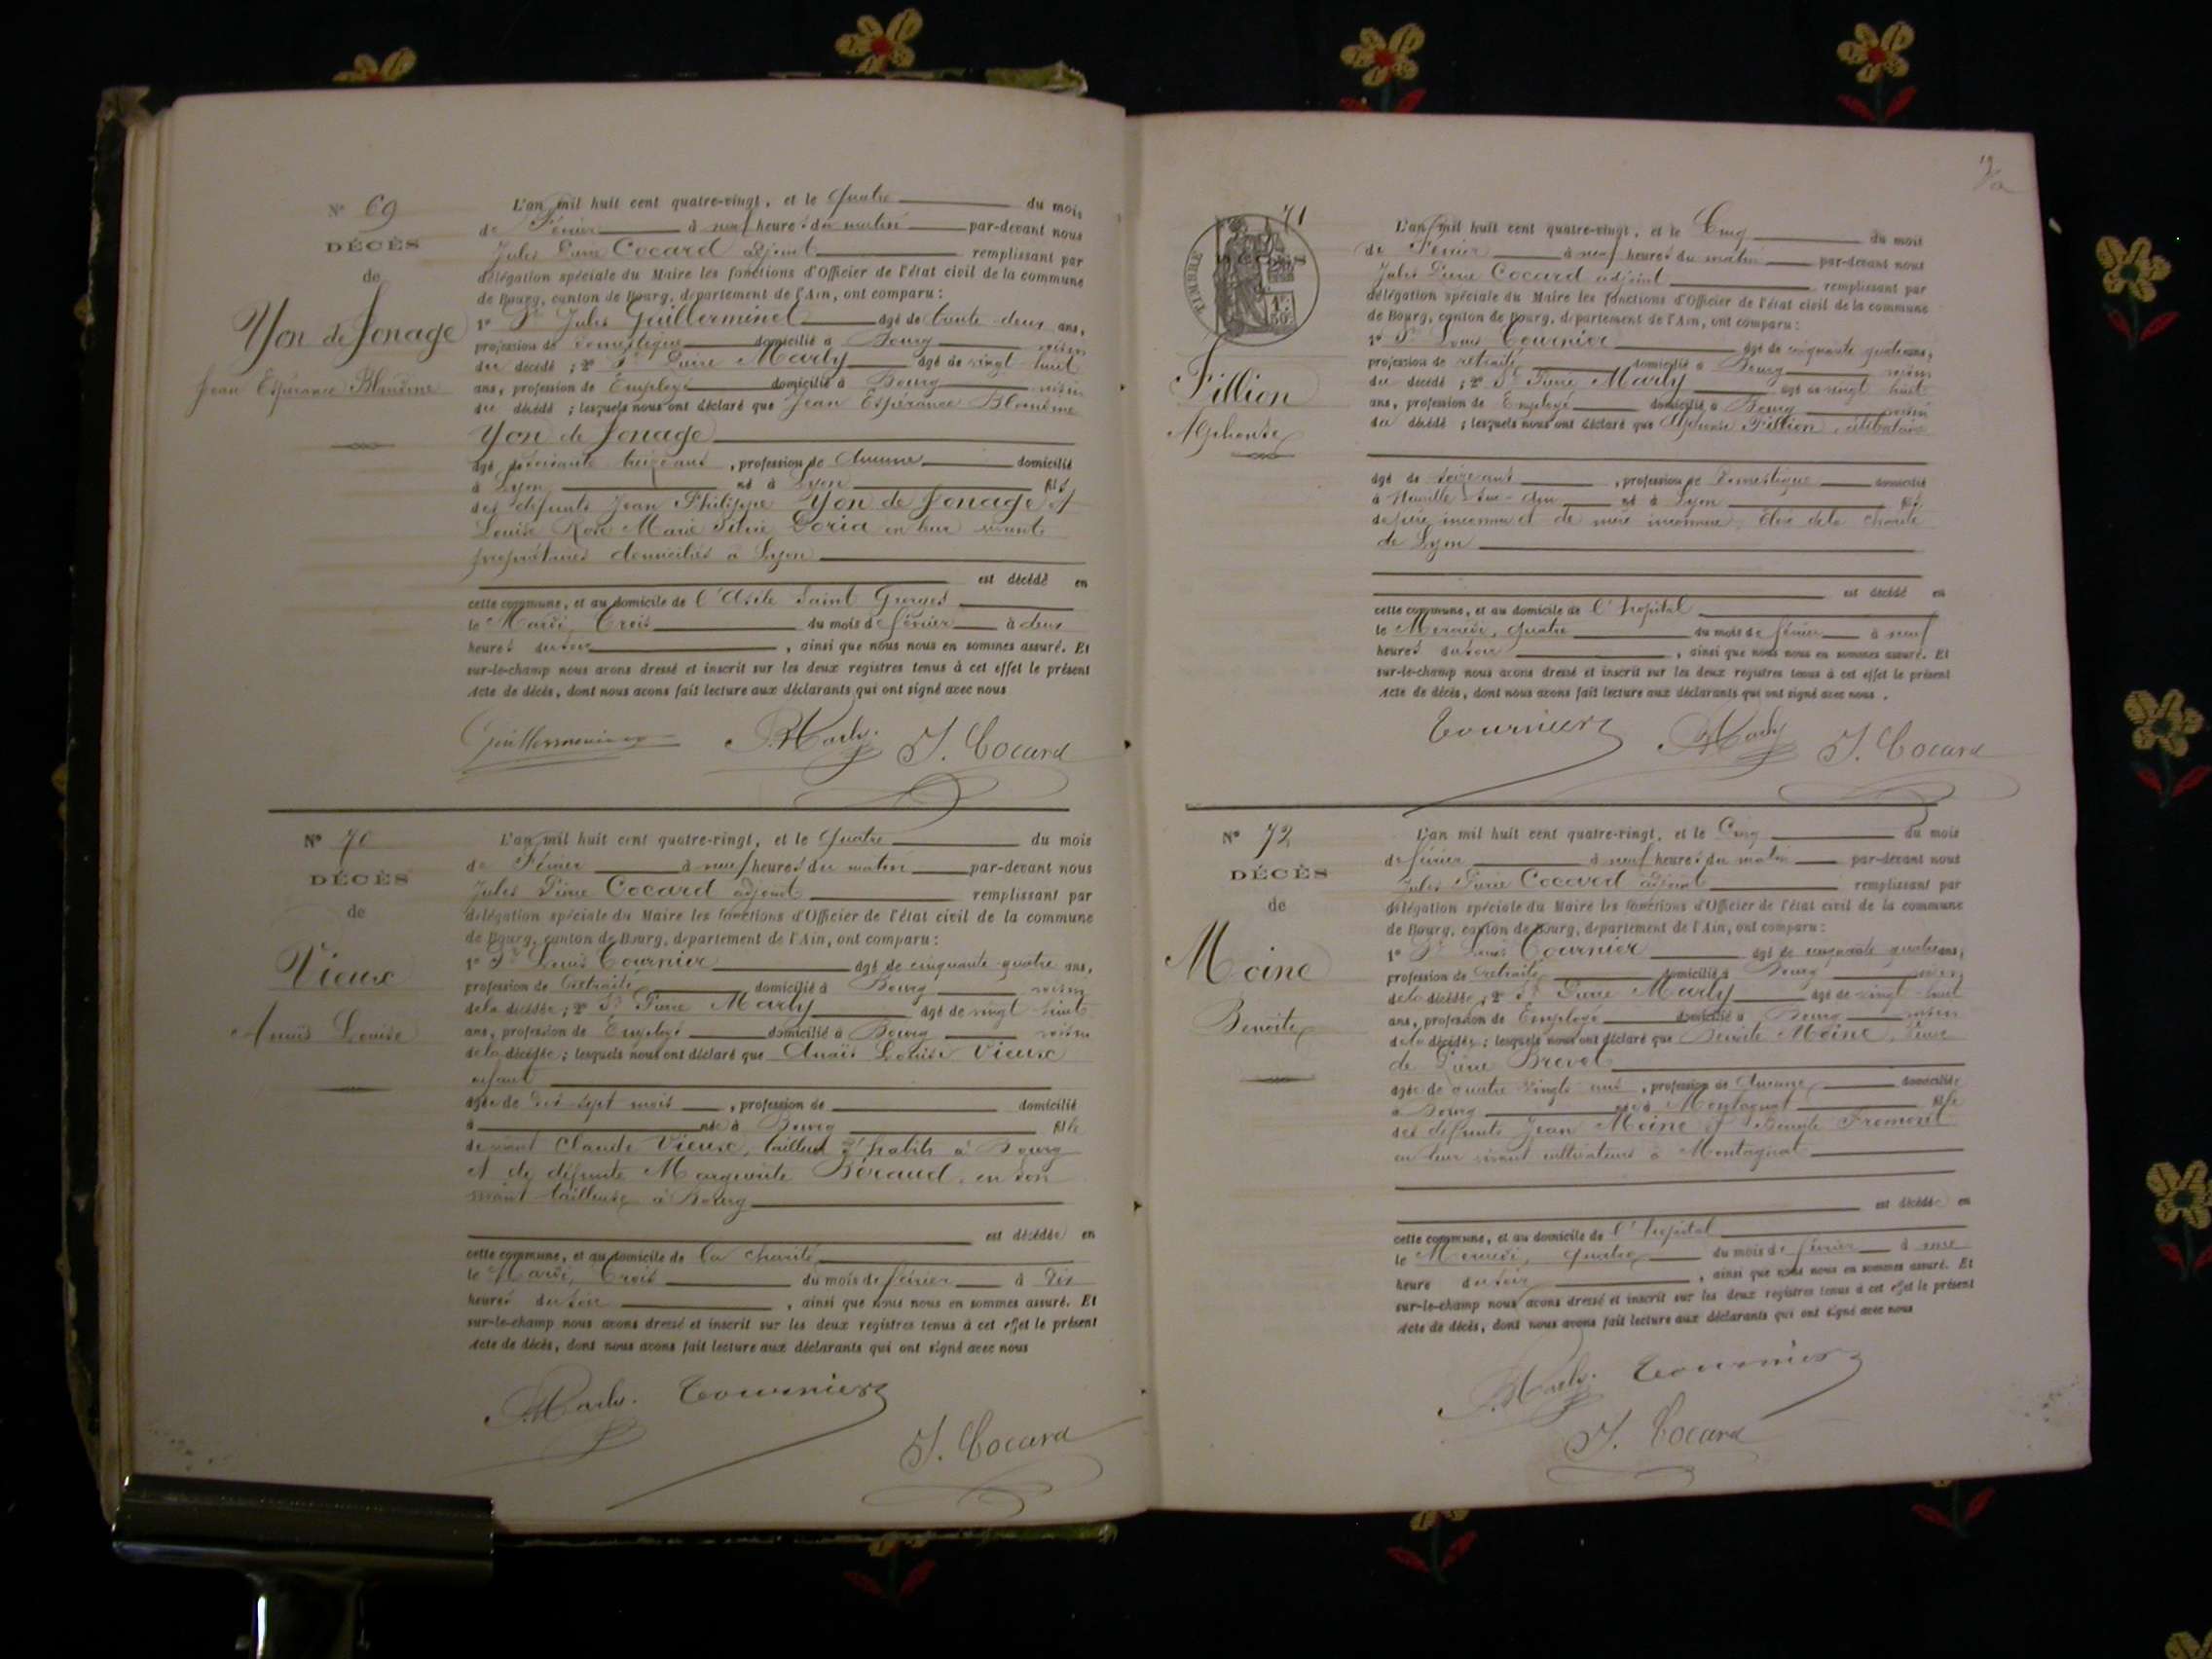 N° 69
DÉCÈS
de
Yon de Jonage
Jean Espérance Blandine
L'an mil huit cent quatre-vingt, et le quatre du mois
de Février à neuf heures du matin par-devant nous
Jules Pierre Cocard adjoint remplissant par
délégation spéciale du Maire les fonctions d'Officier de l'état civil de la commune
de Bourg, canton de Bourg, département de l'Ain, ont comparu :
1° Sr Jules Guillerminet âgé de trente-deux ans,
profession de domestique domicilié à Bourg voisin
du décédé ; 2° Sr Pierre Marly âgé de vingt-huit
ans, profession de Employé domicilié à Bourg voisin
du décédé ; lesquels nous ont déclaré que Jean Espérance Blandine
Yon de Jonage
âgé de soixante treize ans, profession de Aucune domicilié
à Lyon né à Lyon fils
des défunts Jean Philippe Yon de Jonage et
Louise Rose Marie Doria en leur vivant
propriétaires domiciliés à Lyon
est décédé en
cette commune, et au domicile de l'Asile Saint Georges
le Mardi, Trois du mois de février à deux
heures du soir, ainsi que nous nous en sommes assuré. Et
sur-le-champ nous avons dressé et inscrit sur les deux registres tenus à cet effet le présent
Acte de décès, dont nous avons fait lecture aux déclarants qui ont signé avec nous
P. Marly J. Cocard
N° 70
DÉCÈS
de
Vieux
Anaïs Louise
L'an mil huit cent quatre-vingt, et le quatre du mois
de Février à neuf heures du matin par-devant nous
Jules Pierre Cocard adjoint remplissant par
délégation spéciale du Maire les fonctions d'Officier de l'état civil de la commune
de Bourg, canton de Bourg, département de l'Ain, ont comparu :
1° Sr Louis Tournier âgé de cinquante-quatre ans,
profession de retraité domicilié à Bourg voisin
de la décédée ; 2° Sr Pierre Marly âgé de vingt-huit
ans, profession de Employé domicilié à Bourg voisin
de la décédée ; lesquels nous ont déclaré que Anaïs Louise Vieux
enfant
âgée de dix-sept mois, profession de domicilié
à née à Bourg fille
de vivant Claude Vieux, tailleur d'habits à Bourg
et de défunte Marguerite Béraud, en son
vivant tailleuse à Bourg
est décédée en
cette commune, et au domicile de la charité
le Mardi, Trois du mois de février à dix
heures du soir, ainsi que nous nous en sommes assuré. Et
sur-le-champ nous avons dressé et inscrit sur les deux registres tenus à cet effet le présent
Acte de décès, dont nous avons fait lecture aux déclarants qui ont signé avec nous
P. Marly. Tournier
J. Cocard
71
TIMBRE
Fillion
Alphonse
L'an mil huit cent quatre-vingt, et le Cinq du mois
de Février à neuf heures du matin par-devant nous
Jules Pierre Cocard adjoint remplissant par
délégation spéciale du Maire les fonctions d'Officier de l'état civil de la commune
de Bourg, canton de Bourg, département de l'Ain, ont comparu :
1° Sr Louis Tournier âgé de cinquante quatre ans,
profession de retraité domicilié à Bourg voisin
du décédé ; 2° Sr Pierre Marly âgé de vingt-huit
ans, profession de Employé domicilié à Bourg voisin
du décédé ; lesquels nous ont déclaré que Alphonse Fillion, célibataire
âgé de seize ans, profession de Domestique domicilié
à Neuville sur-Ain né à Lyon fils
de père inconnu et de mère inconnue, élève de la charité
de Lyon
est décédé en
cette commune, et au domicile de l'hopital
le Mercredi, quatre du mois de février à neuf
heures du soir, ainsi que nous nous en sommes assuré. Et
sur-le-champ nous avons dressé et inscrit sur les deux registres tenus à cet effet le présent
Acte de décès, dont nous avons fait lecture aux déclarants qui ont signé avec nous.
Tournier P. Marly J. Cocard
N° 72
DÉCÈS
de
Moine
Benoîte
L'an mil huit cent quatre-vingt, et le Cinq du mois
de février à neuf heures du matin par-devant nous
Jules Pierre Cocard adjoint remplissant par
délégation spéciale du Maire les fonctions d'Officier de l'état civil de la commune
de Bourg, canton de Bourg, département de l'Ain, ont comparu :
1° Sr Louis Tournier âgé de cinquante quatre ans,
profession de retraité domicilié à Bourg voisin
de la décédée ; 2° Sr Pierre Marly âgé de vingt-huit
ans, profession de Employé domicilié à Bourg voisin
de la décédée ; lesquels nous ont déclaré que Benoîte Moine, veuve
de Pierre Brevet
âgée de quatre vingts ans, profession de Aucune domiciliée
à Bourg née à Montagnat fille
des défunts Jean Moine et Fromont
en leur vivant cultivateurs à Montagnat
est décédée en
cette commune, et au domicile de l'hopital
le Mercredi, quatre du mois de février à onze
heure du soir, ainsi que nous nous en sommes assuré. Et
sur-le-champ nous avons dressé et inscrit sur les deux registres tenus à cet effet le présent
Acte de décès, dont nous avons fait lecture aux déclarants qui ont signé avec nous
P. Marly. Tournier
J. Cocard